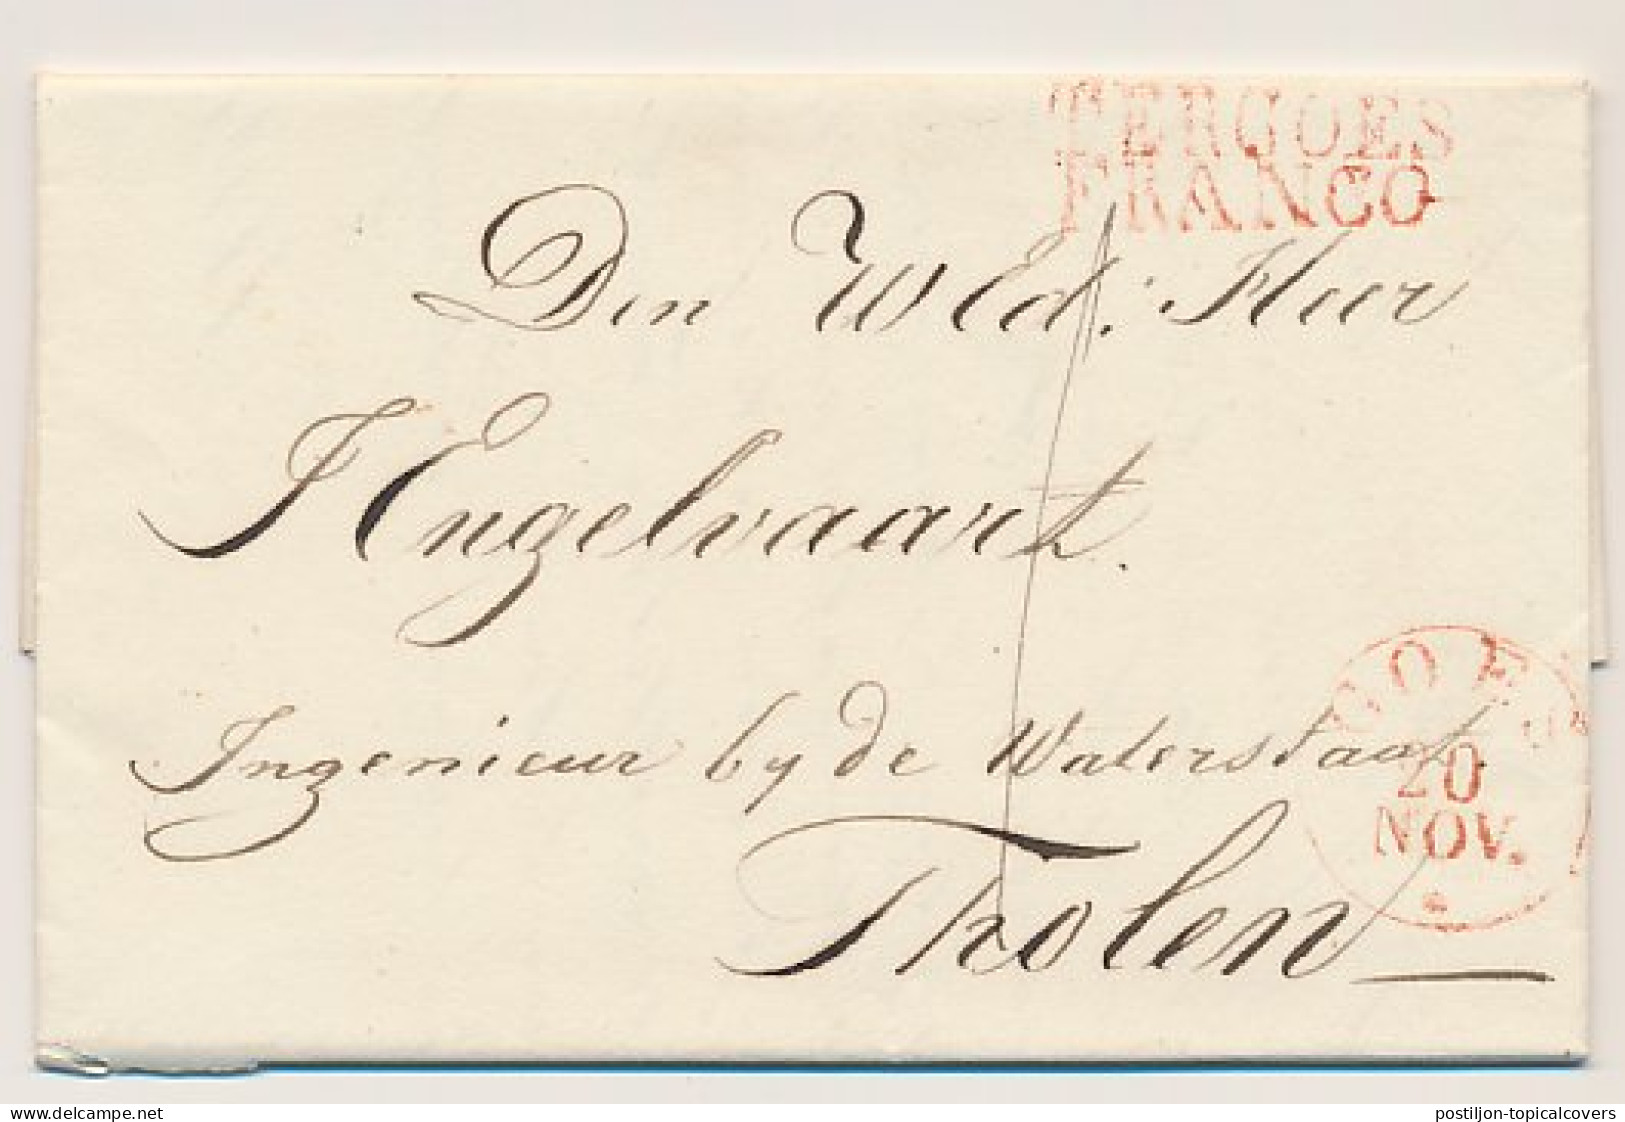 TERGOES
FRANCO
Den WEd: Heer
J Engelvaart.
Ingenieur by de Waterstaat.
GOES
20
NOV.
Tholen
www.delcampe.net
postiljon-topicalcovers